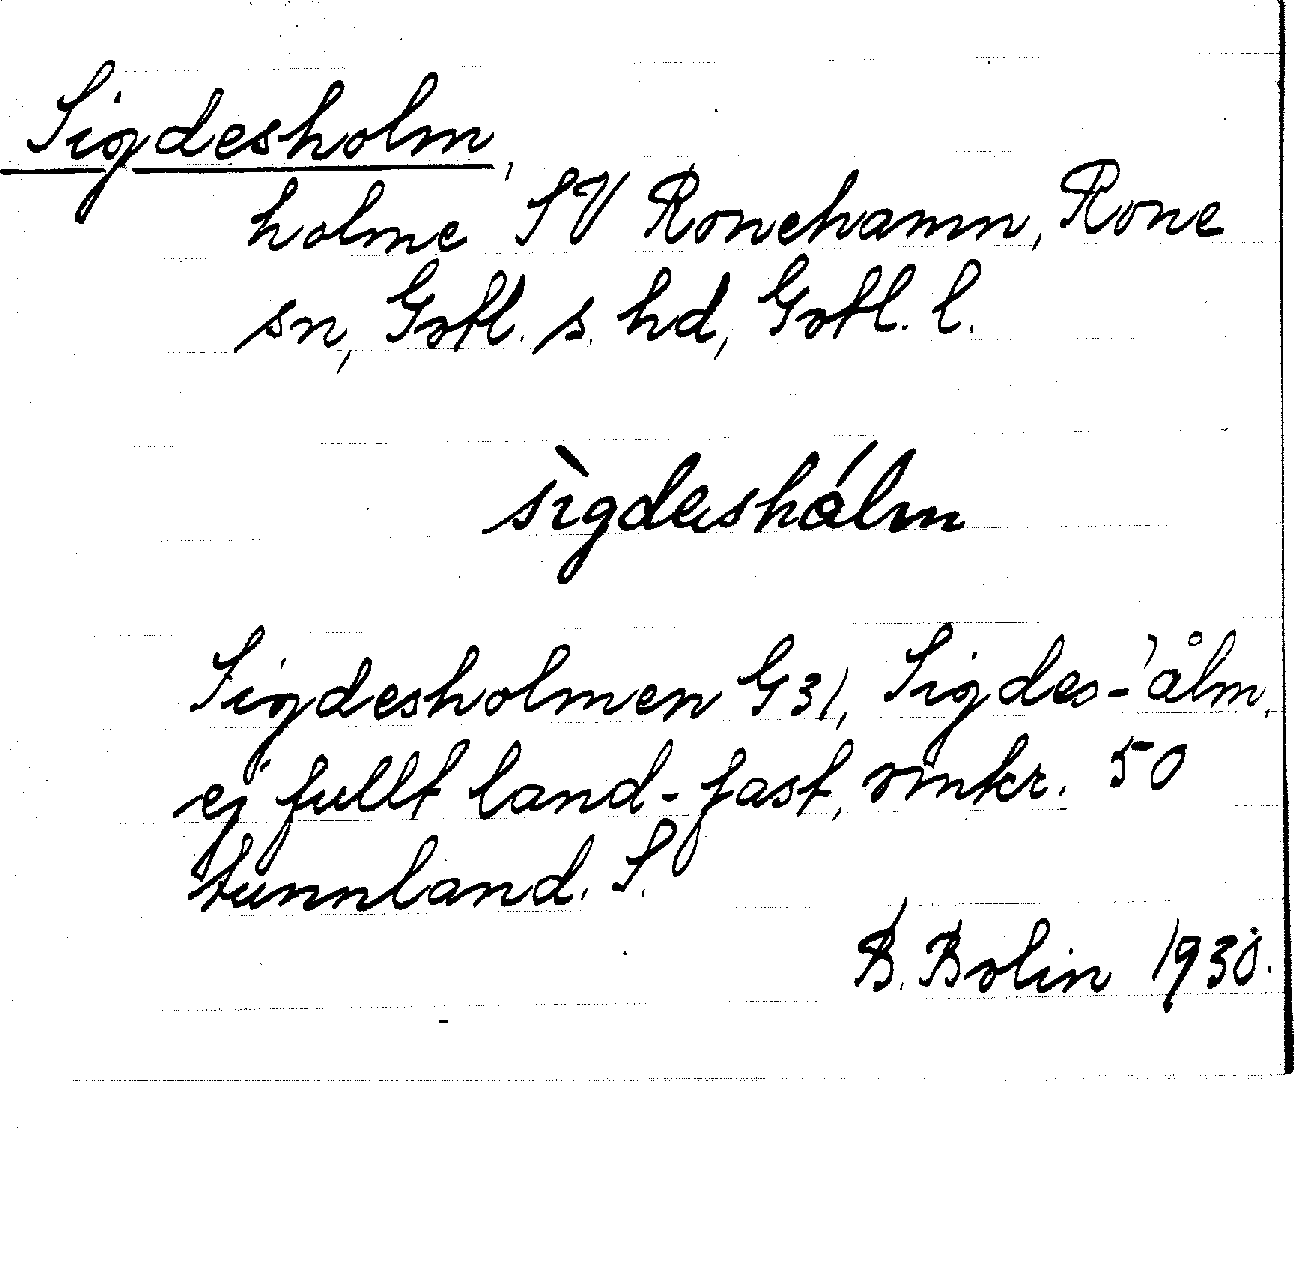 Sigdesholm,
holme SV Ronehamn, Rone
sn, Gotl. s. hd, Gotl. l.
sìgdashálm
Sigdesholmen G31, Sigdes-'ålm,
ej fullt land-fast, omkr. 50
tunnland. S.
B. Bolin 1930.